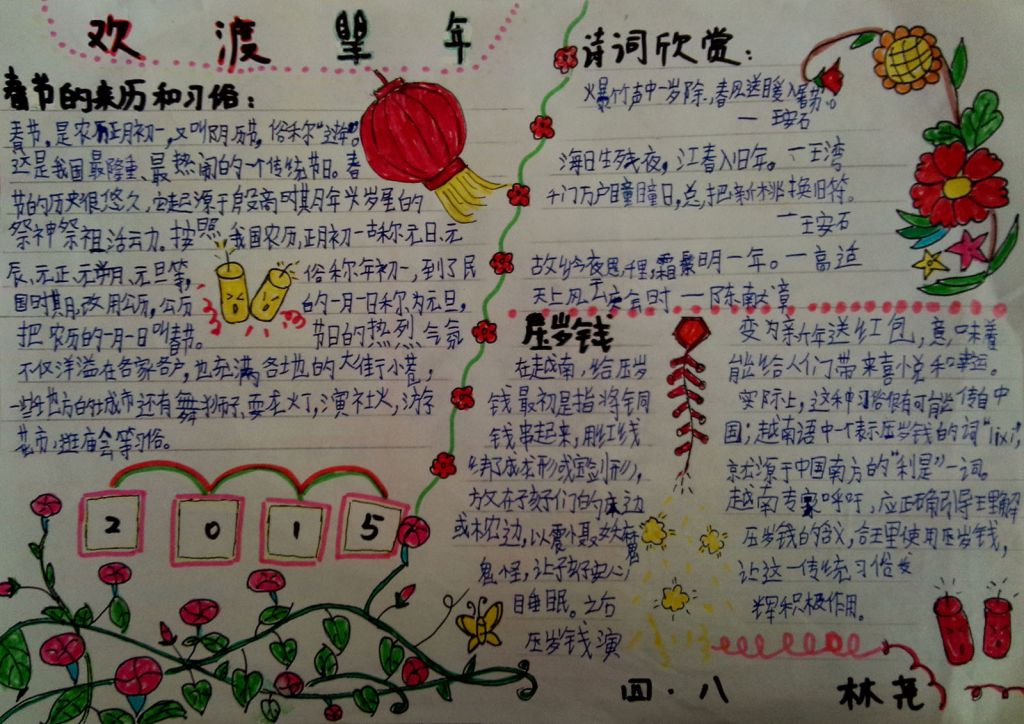 欢渡羊年
春节的来历和习俗：
春节，是农历正月初一，又叫阴历节，俗称“过年”。
这是我国最隆重、最热闹的一个传统节日。春
节的历史很悠久，它起源于殷商时期年头岁尾的
祭神祭祖活动。按照我国农历，正月初一古称元日、元
辰、元正、元朔、元旦等，俗称年初一，到了民
国时期，改用公历，公历的一月一日称为元旦，
把农历的一月一日叫春节。节日的热烈气氛
不仅洋溢在各家各户，也充满各地的大街小巷，
一些地方的城市还有舞狮子、耍龙灯，演社火，游
花市，逛庙会等习俗。
2015
诗词欣赏：
爆竹声中一岁除，春风送暖入屠苏。
—王安石
海日生残夜，江春入旧年。—王湾
千门万户曈曈日，总把新桃换旧符。
—王安石
故乡今夜思千里，霜鬓明一年。—高适
天上风云庆会时—陈献章
压岁钱
在越南，给压岁
钱最初是指将铜
钱串起来，用红线
绑了成龙形或宝剑形，
放在孩子们的床边
或枕边，以震慑妖魔
鬼怪，让孩子安心
睡眠。之后
压岁钱演
变为新年送红包，意味着
能给人们带来喜悦和幸运。
实际上，这种习俗很有可能传自中
国；越南语中一个表示压岁钱的词“lixi”，
就源于中国南方的“利是”一词。
越南专家呼吁，应正确引导、理解
压岁钱的含义，合理使用压岁钱，
让这一传统习俗发
挥积极作用。
四·八
林尧